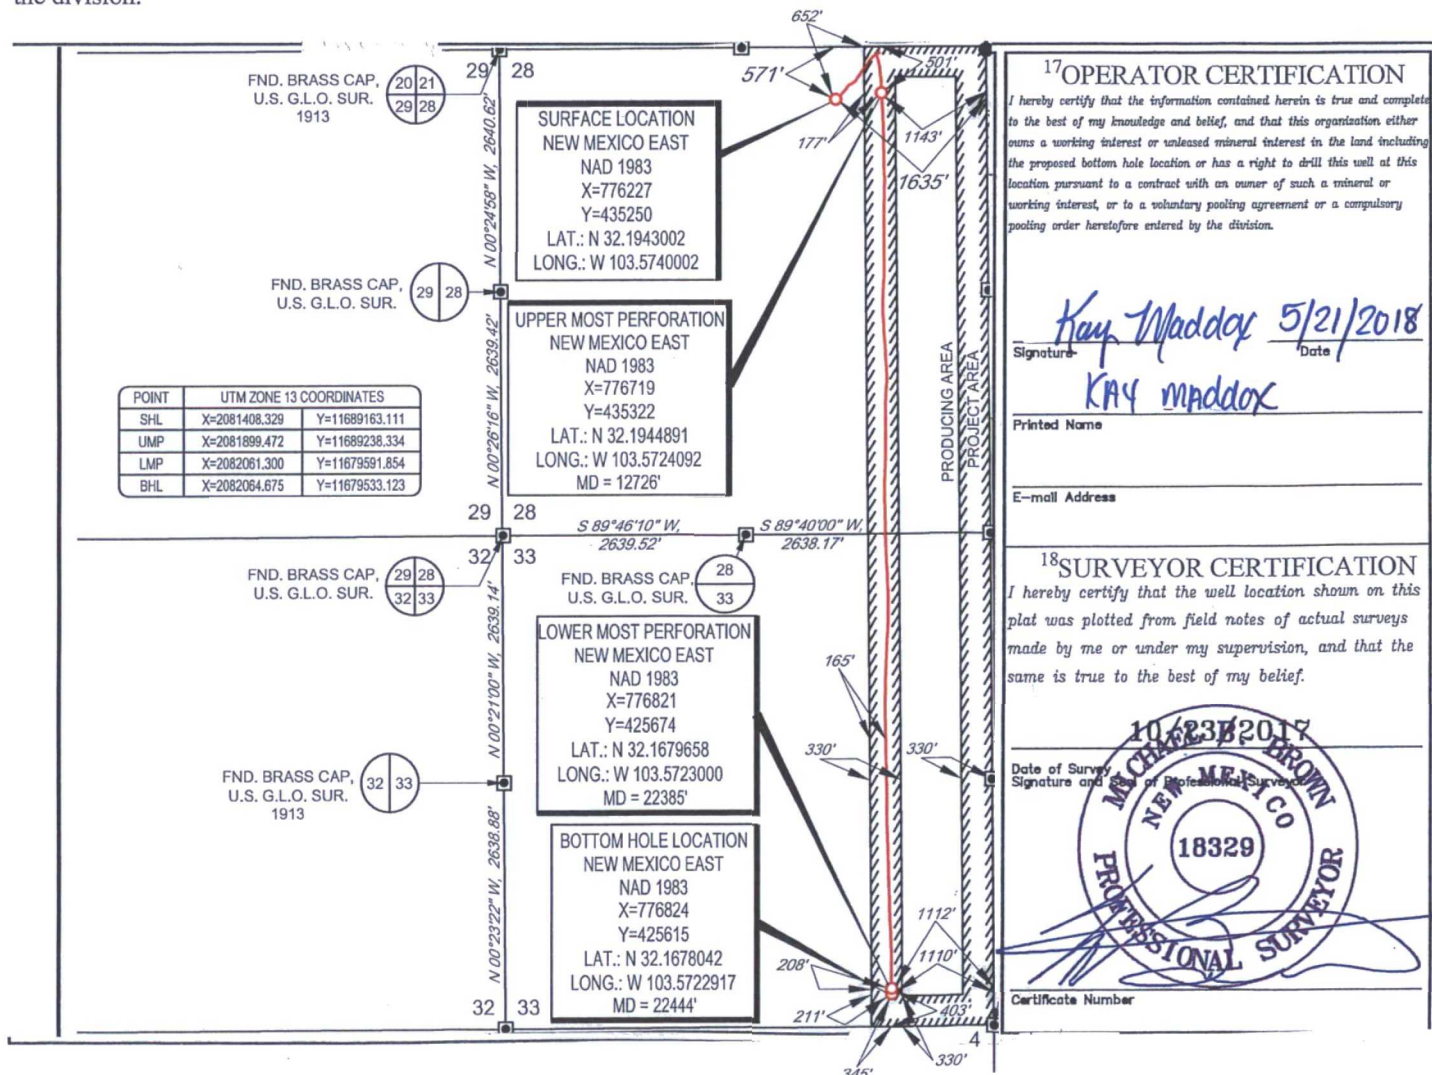 the division.
652'
571'
501'
177'
1143'
1635'
29 28
FND. BRASS CAP,
U.S. G.L.O. SUR.
1913
20 21
29 28
N 00°24'58" W, 2640.62'
SURFACE LOCATION
NEW MEXICO EAST
NAD 1983
X=776227
Y=435250
LAT.: N 32.1943002
LONG.: W 103.5740002
FND. BRASS CAP,
U.S. G.L.O. SUR.
29 28
N 00°26'16" W, 2639.42'
UPPER MOST PERFORATION
NEW MEXICO EAST
NAD 1983
X=776719
Y=435322
LAT.: N 32.1944891
LONG.: W 103.5724092
MD = 12726'
PRODUCING AREA
PROJECT AREA
POINT UTM ZONE 13 COORDINATES
SHL X=2081408.329 Y=11689163.111
UMP X=2081899.472 Y=11689238.334
LMP X=2082061.300 Y=11679591.854
BHL X=2082064.675 Y=11679533.123
29 28
32 33
S 89°46'10" W,
2639.52'
S 89°40'00" W,
2638.17'
FND. BRASS CAP,
U.S. G.L.O. SUR.
29 28
32 33
FND. BRASS CAP,
U.S. G.L.O. SUR.
28
33
N 00°21'00" W, 2639.14'
LOWER MOST PERFORATION
NEW MEXICO EAST
NAD 1983
X=776821
Y=425674
LAT.: N 32.1679658
LONG.: W 103.5723000
MD = 22385'
165'
330'
330'
FND. BRASS CAP,
U.S. G.L.O. SUR.
1913
32 33
N 00°23'22" W, 2638.88'
BOTTOM HOLE LOCATION
NEW MEXICO EAST
NAD 1983
X=776824
Y=425615
LAT.: N 32.1678042
LONG.: W 103.5722917
MD = 22444'
1112'
1110'
208'
211'
403'
32 33
4
330'
345'
17 OPERATOR CERTIFICATION
I hereby certify that the information contained herein is true and complete
to the best of my knowledge and belief, and that this organization either
owns a working interest or unleased mineral interest in the land including
the proposed bottom hole location or has a right to drill this well at this
location pursuant to a contract with an owner of such a mineral or
working interest, or to a voluntary pooling agreement or a compulsory
pooling order heretofore entered by the division.
Kay Maddox 5/21/2018
Signature Date
KAY MADDOX
Printed Name
E-mail Address
18 SURVEYOR CERTIFICATION
I hereby certify that the well location shown on this
plat was plotted from field notes of actual surveys
made by me or under my supervision, and that the
same is true to the best of my belief.
10/23/2017
Date of Survey
Signature and Seal of Professional Surveyor
MICHAEL B. BROWN
NEW MEXICO
18329
PROFESSIONAL SURVEYOR
Certificate Number